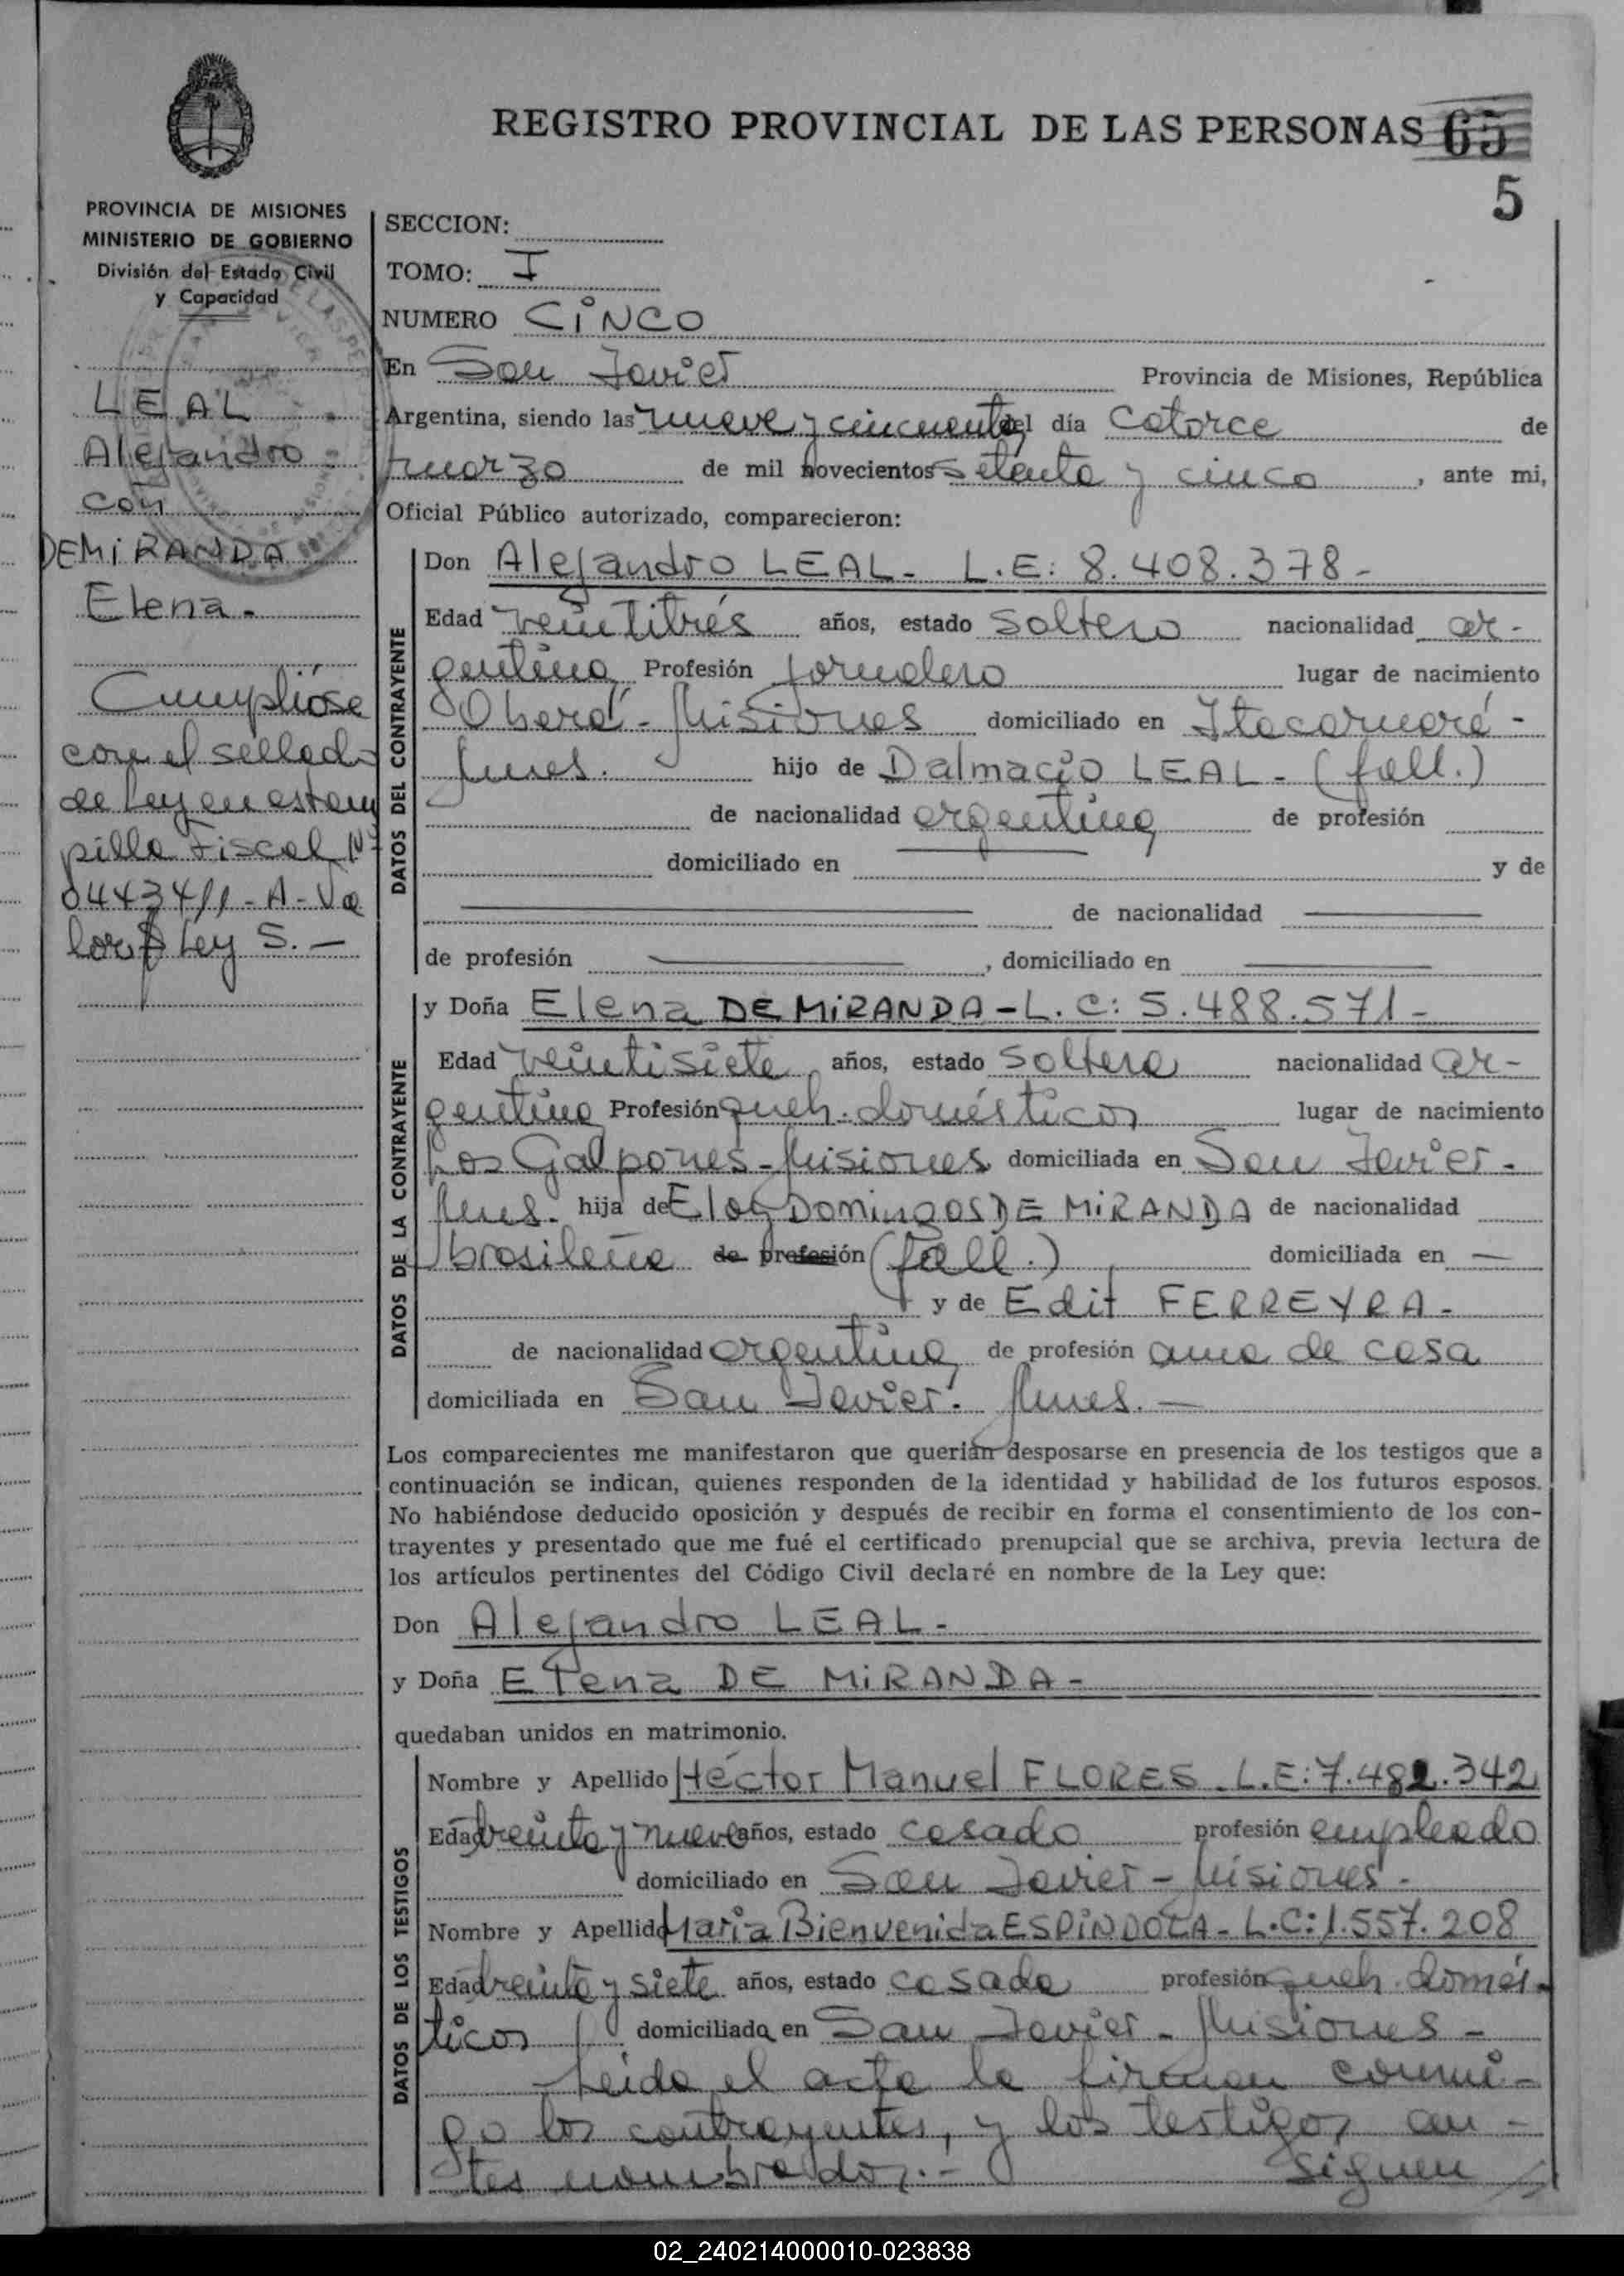 REGISTRO PROVINCIAL DE LAS PERSONAS 65
5
PROVINCIA DE MISIONES
MINISTERIO DE GOBIERNO
División del Estado Civil
y Capacidad
LEAL
Alejandro
con
DEMiRANDA
Elena.
Cumplióse
con el sellado
de ley en estam
pilla Fiscal Nº
0443411-A-Va
lor $ Ley 5.—
SECCION:
TOMO: I
NUMERO CiNCO
En San Javier Provincia de Misiones, República
Argentina, siendo las nueve y cincuenta del día catorce de
marzo de mil novecientos setenta y cinco, ante mi,
Oficial Público autorizado, comparecieron:
DATOS DEL CONTRAYENTE
Don Alejandro LEAL- L.E: 8.408.378-
Edad veintitrés años, estado soltero nacionalidad ar-
gentina Profesión jornalero lugar de nacimiento
Oberá-Misiones domiciliado en Itacaruaré-
Mnes. hijo de Dalmacio LEAL-(fall.)
de nacionalidad argentina de profesión
domiciliado en y de
de nacionalidad
de profesión , domiciliado en
DATOS DE LA CONTRAYENTE
y Doña Elena DE MiRANDA-L.C: 5.488.571-
Edad veintisiete años, estado soltera nacionalidad ar-
gentina Profesión queh. domésticos lugar de nacimiento
Los Galpones-Misiones domiciliada en San Javier-
Mnes. hija de Eloy Domingos DE MiRANDA de nacionalidad
brasileña de profesión (fall.) domiciliada en —
y de Edit FERREYRA-
de nacionalidad argentina de profesión ama de casa
domiciliada en San Javier. Mnes.—
Los comparecientes me manifestaron que querían desposarse en presencia de los testigos que a
continuación se indican, quienes responden de la identidad y habilidad de los futuros esposos.
No habiéndose deducido oposición y después de recibir en forma el consentimiento de los con-
trayentes y presentado que me fué el certificado prenupcial que se archiva, previa lectura de
los artículos pertinentes del Código Civil declaré en nombre de la Ley que:
Don Alejandro LEAL-
y Doña Elena DE MiRANDA-
quedaban unidos en matrimonio.
DATOS DE LOS TESTIGOS
Nombre y Apellido Héctor Manuel FLORES.L.E:7.482.342
Edad treinta y nueve años, estado casado profesión empleado
domiciliado en San Javier-Misiones-
Nombre y Apellido María Bienvenida ESPíNDOLA-L.C:1.557.208
Edad treinta y siete años, estado casada profesión queh. domés-
ticos domiciliada en San Javier-Misiones-
Leída el acta la firman conmi-
go los contrayentes, y los testigos an-
tes nombrados.- Siguen
02_240214000010-023838